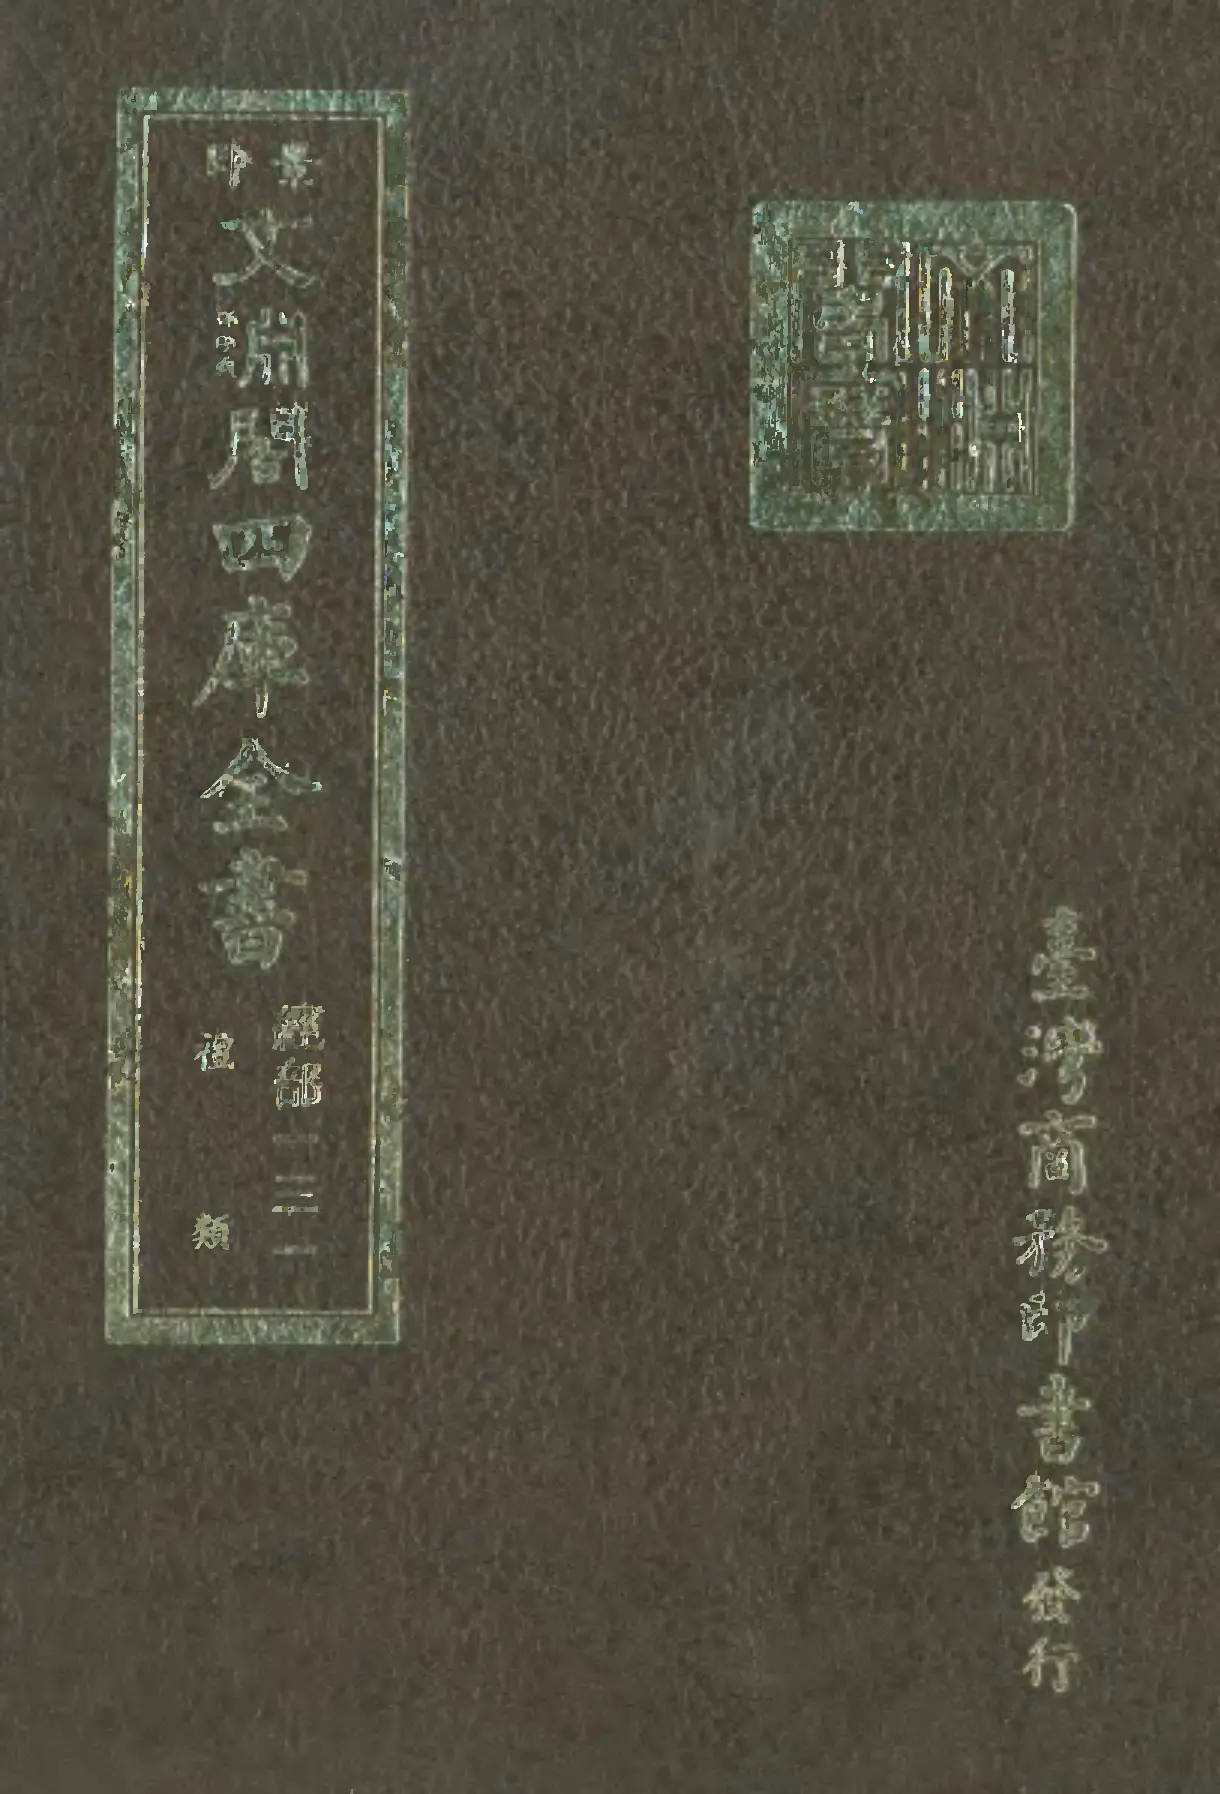 景印
文淵閣四庫全書
經部一二一
禮類
臺灣商務印書館發行